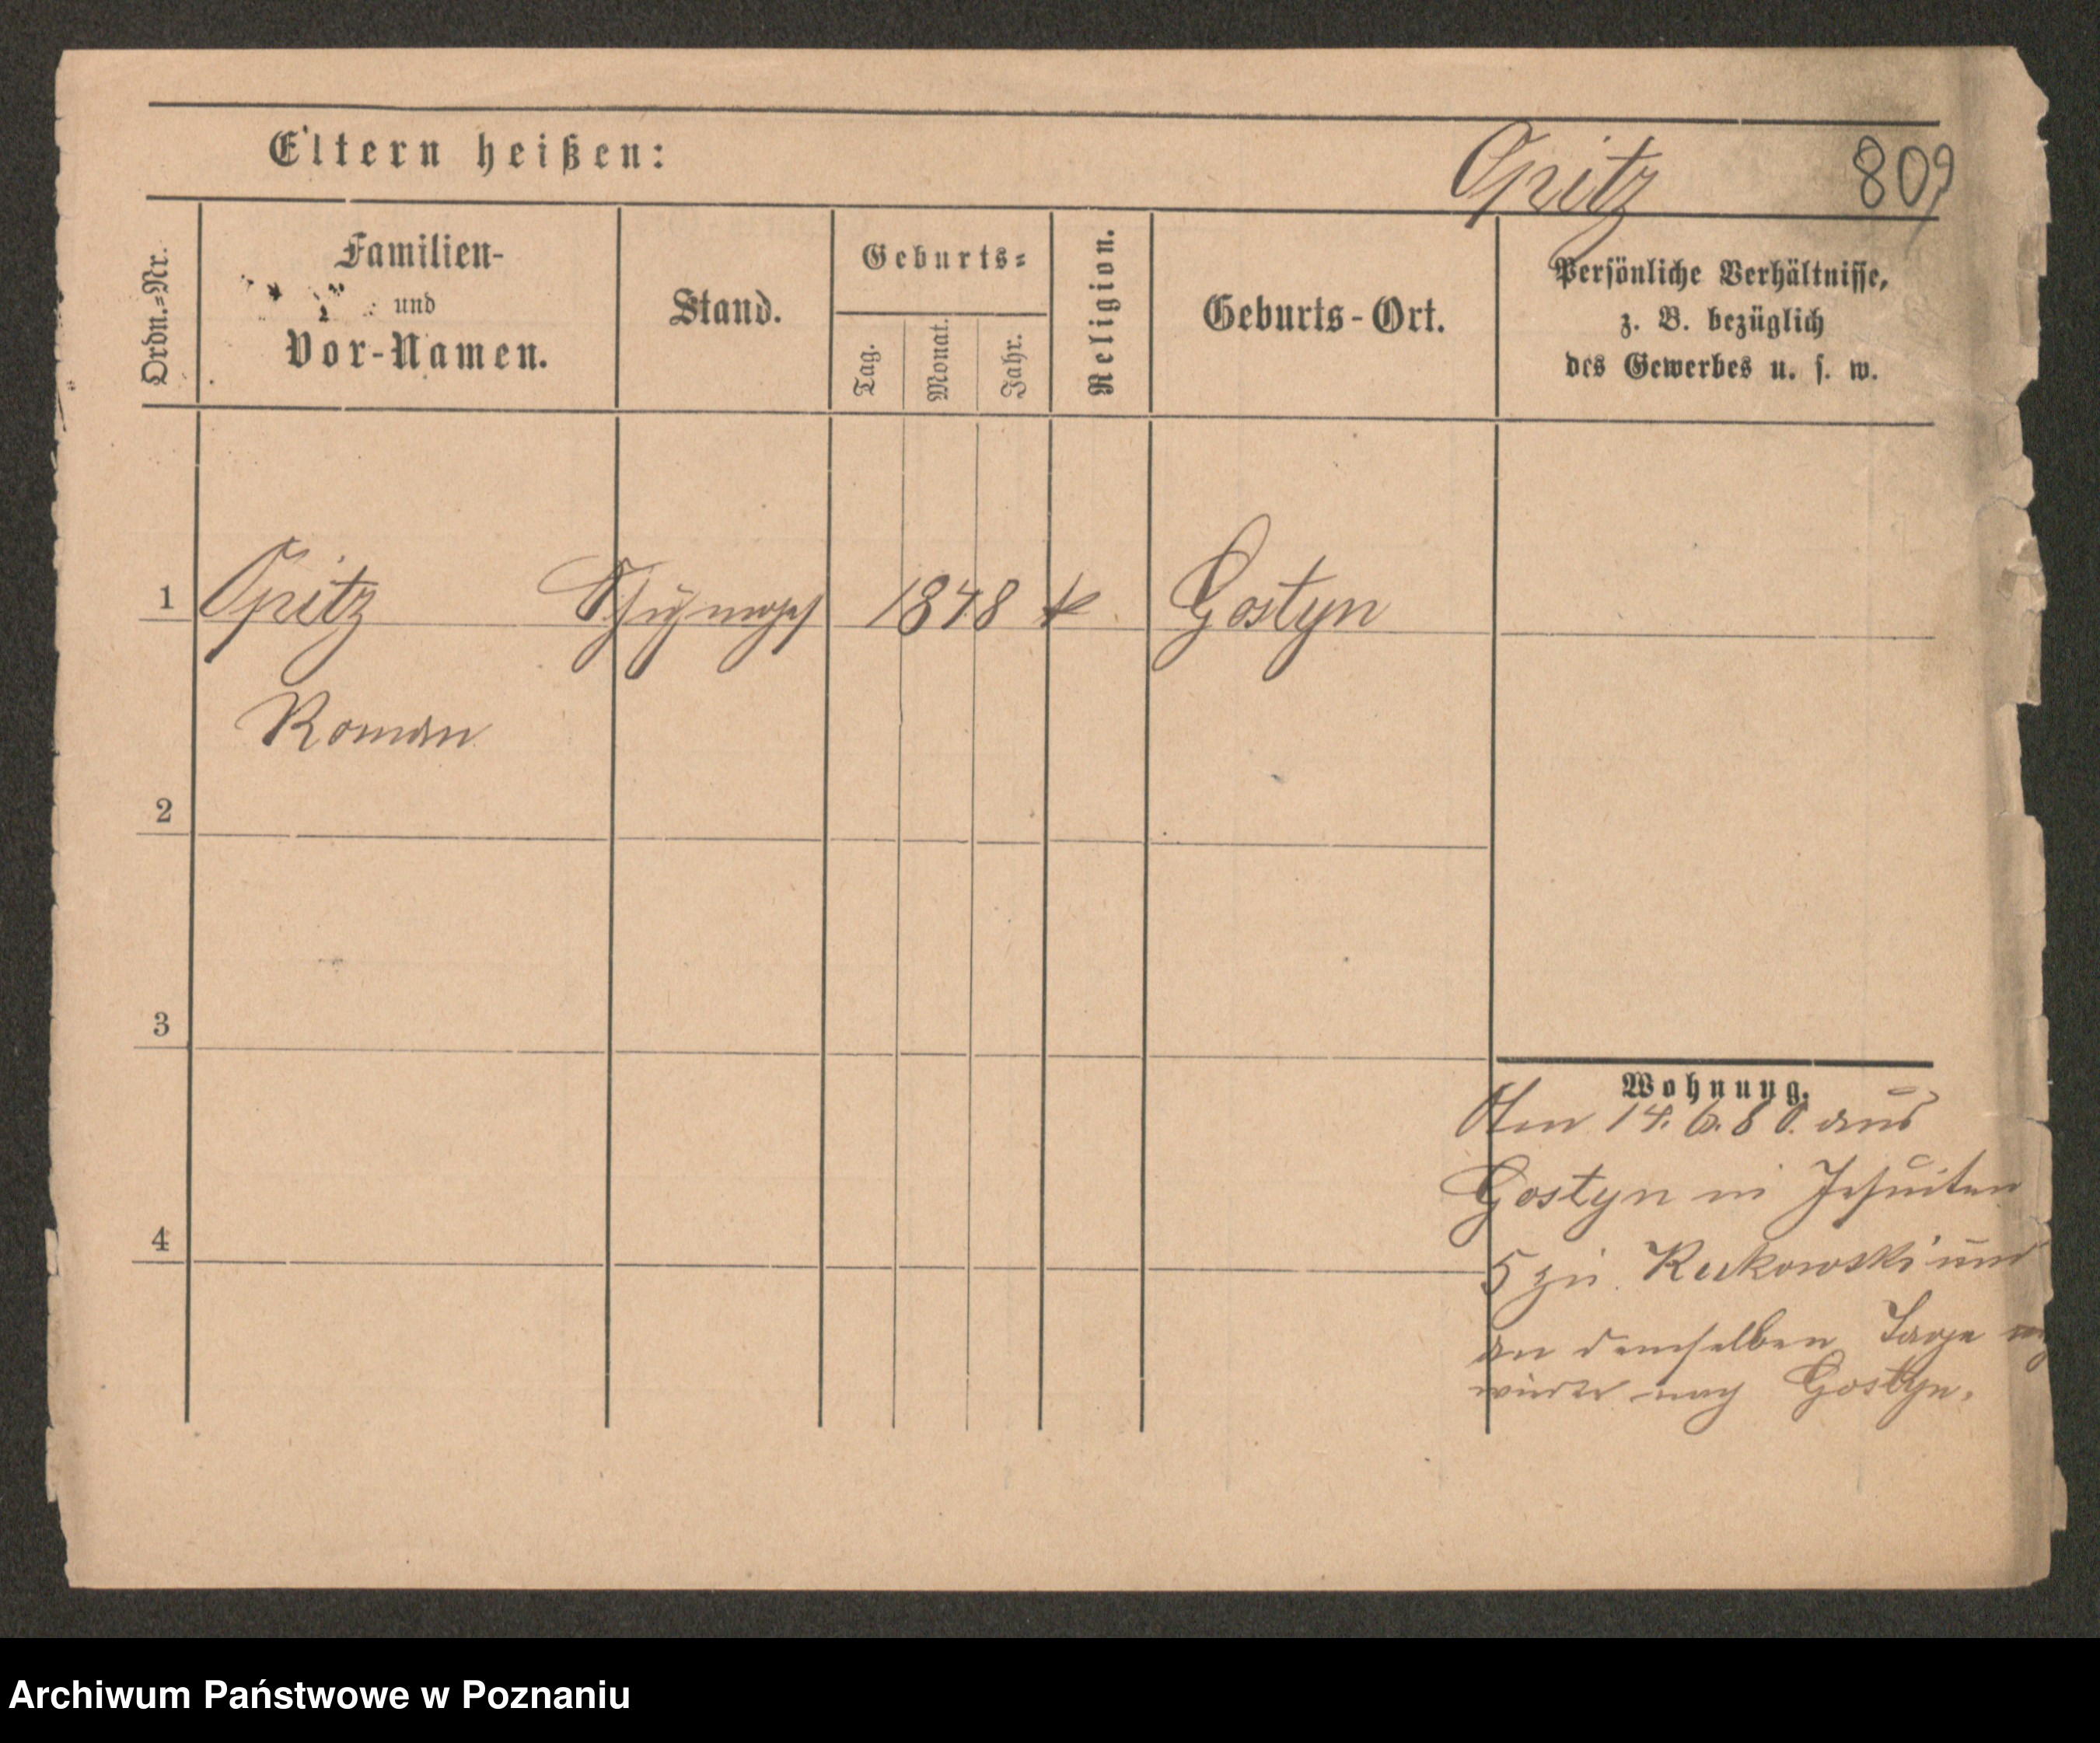 Eltern heißen:
Opitz
809
Ordn.=Nr.
Familien-
und
Vor-Namen.
Stand.
Geburts=
Tag.
Monat.
Jahr.
Religion.
Geburts-Ort.
Persönliche Verhältnisse,
z. B. bezüglich
des Gewerbes u. s. w.
1 Opitz 1848 k Gostyn
Roman
2
3
4
Wohnung.
Den 14. 6. 80. aus
Gostyn in Jesuiten
5 zu Rukowski und
an demselben Tage
wieder nach Gostyn.
Archiwum Państwowe w Poznaniu